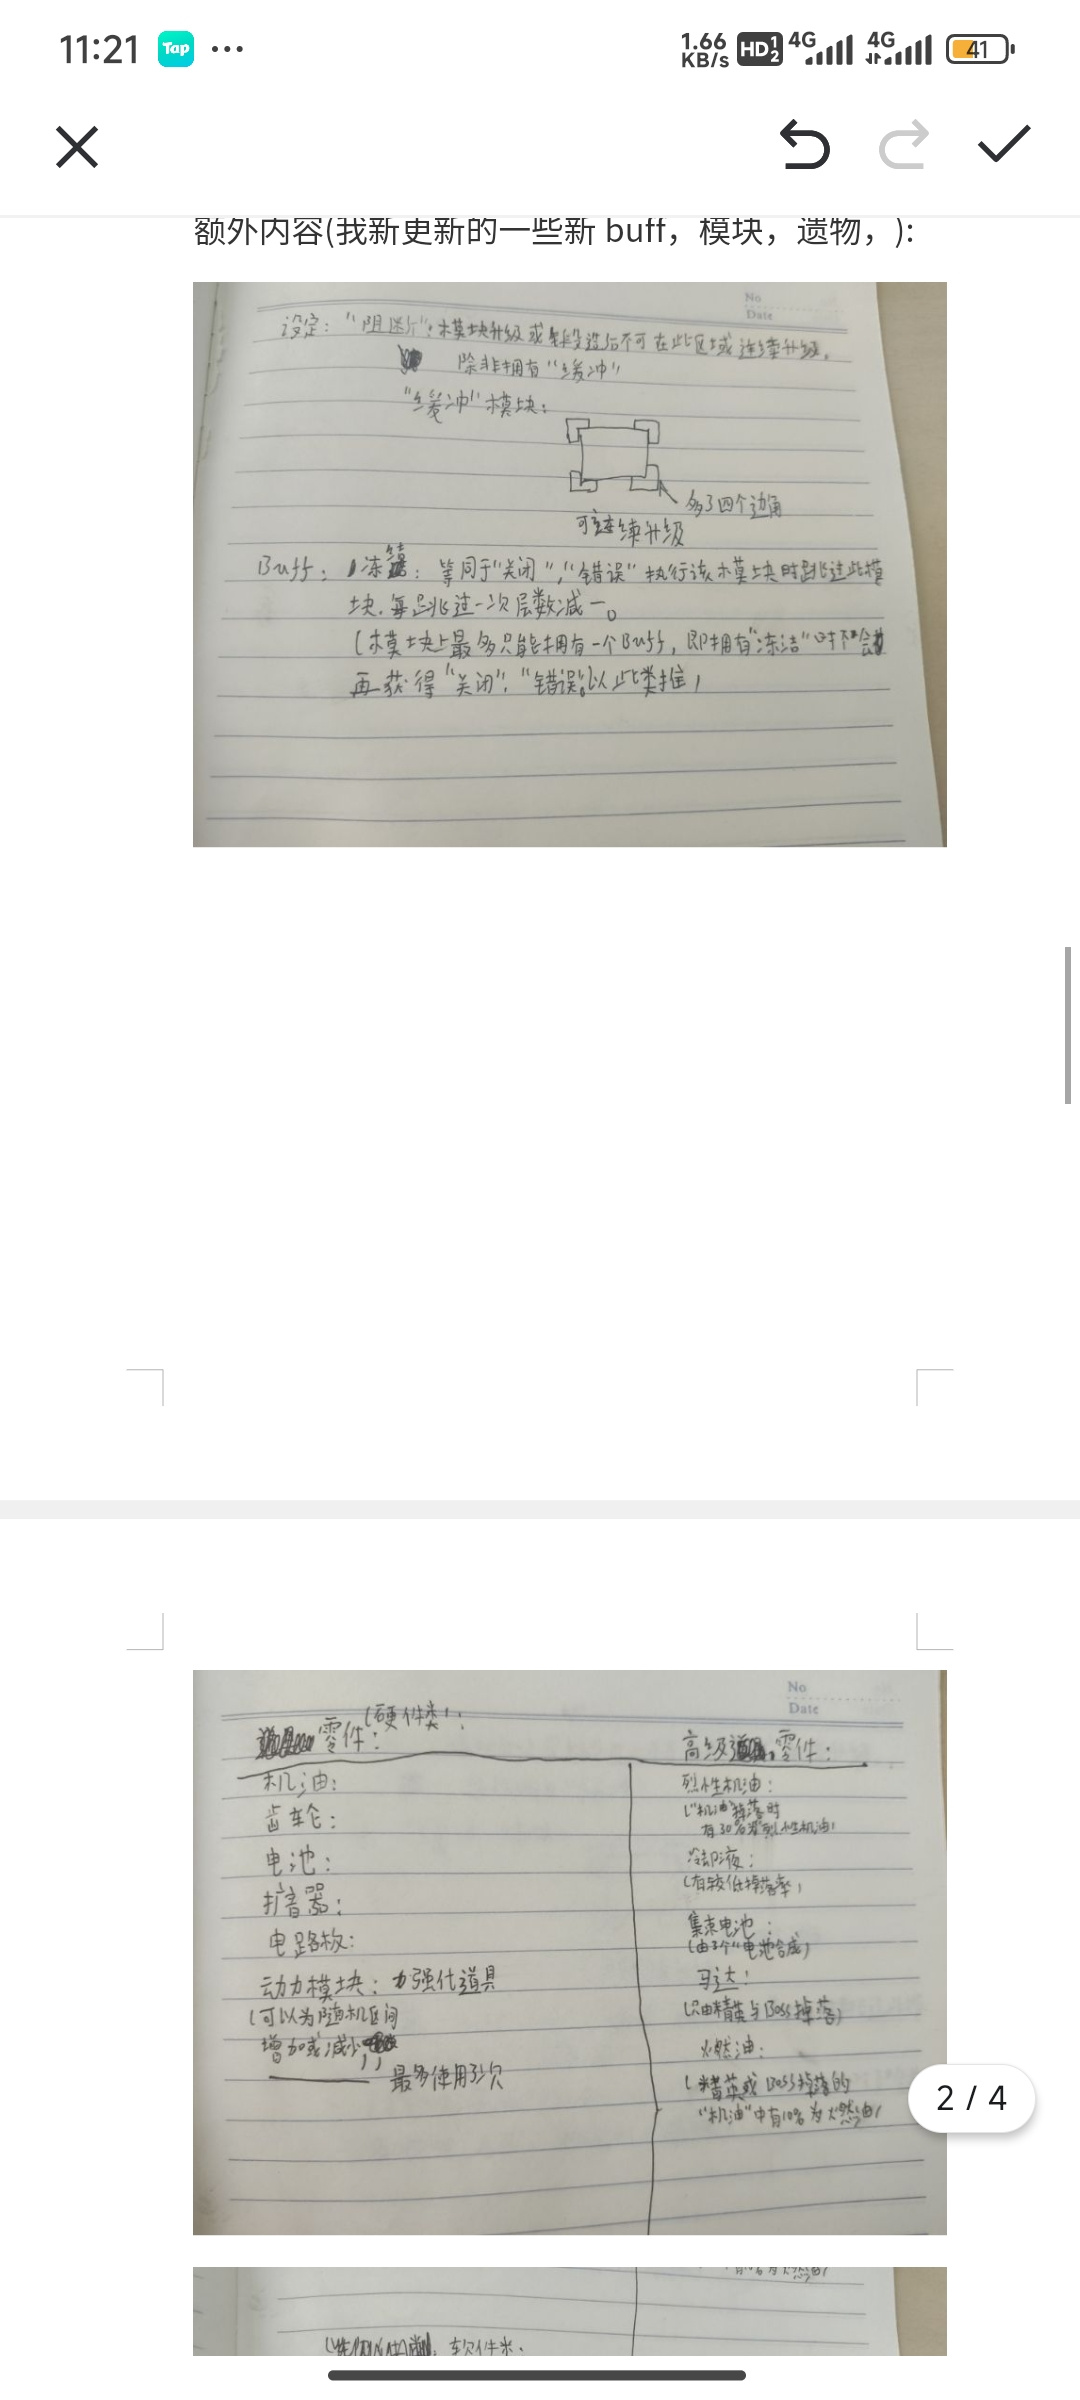 11:21 Tap ... 1.66 KB/s HD 1 2 4G 4G 41
额外内容(我新更新的一些新 buff，模块，遗物，):
No
Date
设定："阻断"：模块升级或后不可在此区域连续升级，
除非拥有"缓冲"
"缓冲"模块：
多了四个边角
可连续升级
Buff：冻结：等同于"关闭"，"错误"执行该模块时跳过此模
块，每跳过一次层数减一。
(模块上最多只能拥有一个Buff，即拥有"冻洁"时不会
再获得"关闭"，"错误"。以此类推)
No
Date
零件(硬件类)：
高级零件：
机油：
齿轮：
电池：
扩音器：
电路板：
动力模块：力强化道具
(可以为随机区间
增加或减少)
最多使用3次
烈性机油：
("机油"掉落时
有30%为烈性机油)
冷却液：
(有较低掉落率)
集束电池：
(由3个"电池"合成)
马达：
(只由精英与Boss掉落)
燃油：
(精英或Boss掉落的
"机油"中有10%为燃油)
2 / 4
软件类：